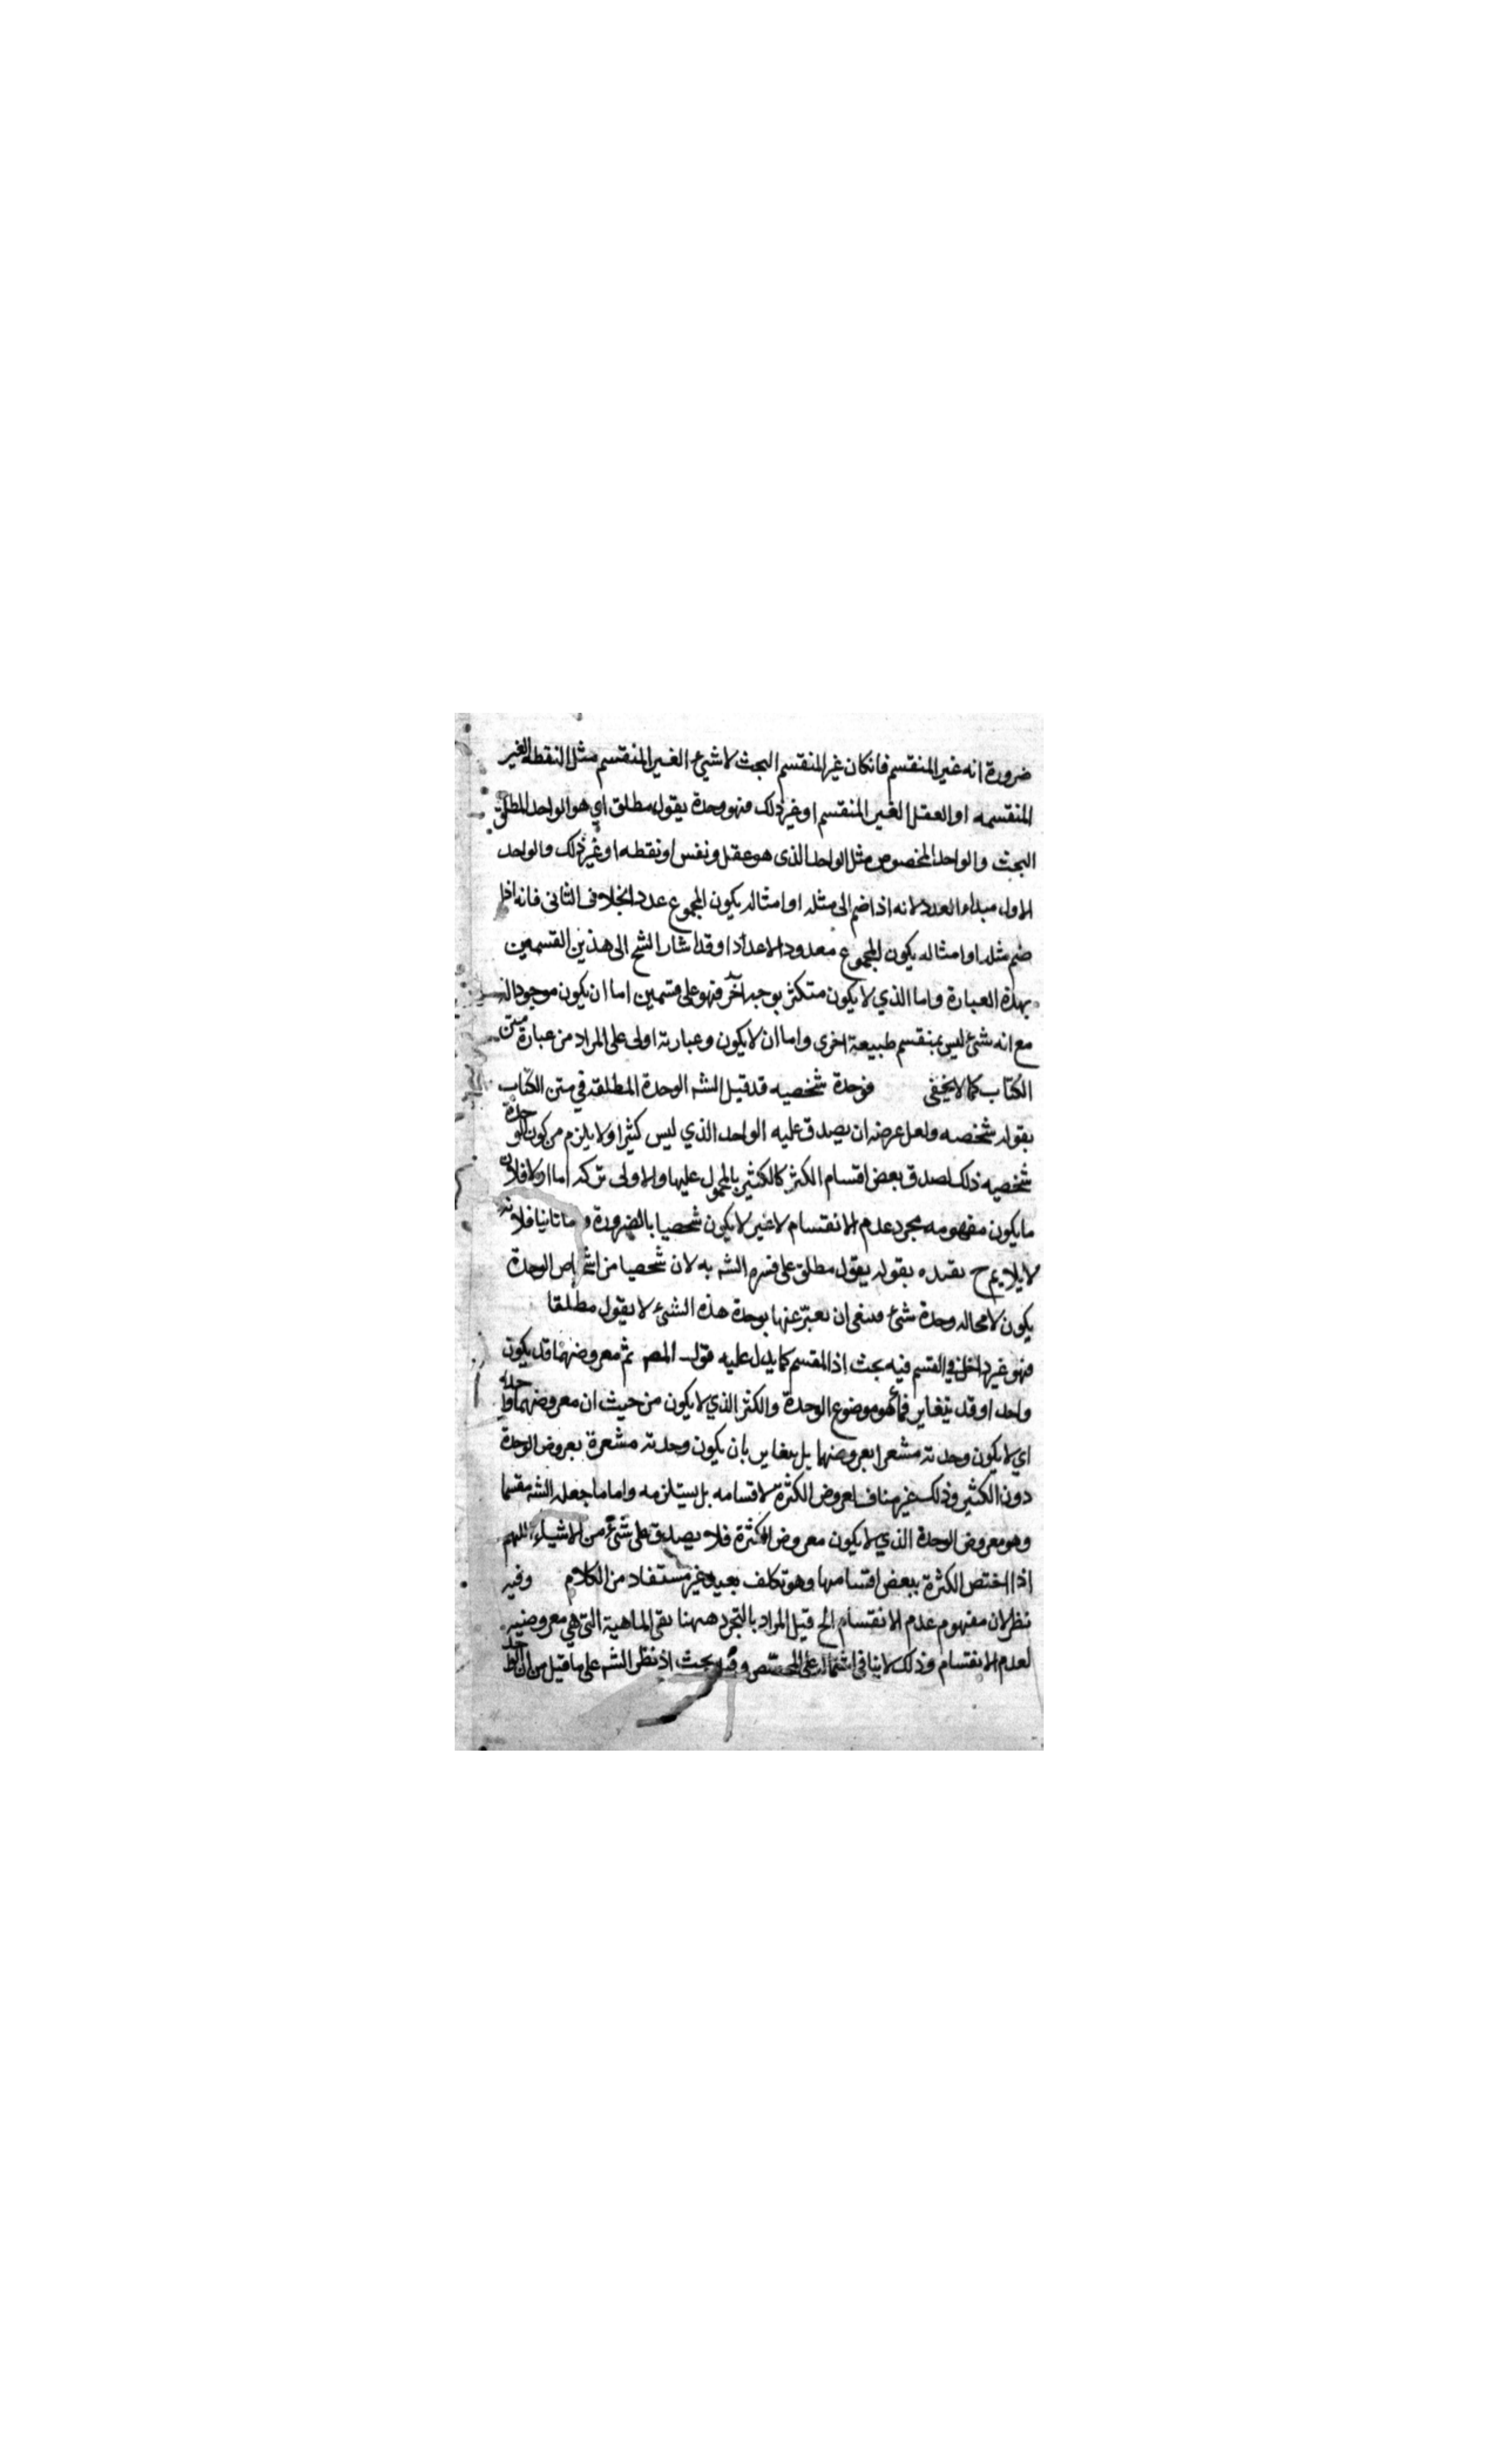 ضرورة انه غير المنقسم فانكان غير المنقسم البحث لا شيئ الغير المنقسم مثل النقطه الغير
المنقسمه او العقل الغير المنقسم او غير ذلك فهو وحدة يقول مطلق اي هو الواحد المطلق
البحث والواحد المخصوص مثل الواحد الذى هو عقل ونفس او نقطه او غير ذلك والواحد
الاول مبداء العدد لانه اذا ضم الى مثله او امثاله يكون المجموع عددا بخلاف الثانى فانه اذا
ضم مثله او امثاله يكون المجموع معدود الاعدادا وقد اشار الشح الى هذين القسمين
بهذة العبارة واما الذي لا يكون متكثر بوجه آخر فهو على قسمين اما ان يكون موجودا له
مع انه شئ ليس بمنقسم طبيعة اخرى واما ان لا يكون وعبارته اولى على المراد من عبارة متن
الكتاب كما لا يخفى فوحدة شخصيه قد قيل الشه الوحدة المطلقه في متن الكتاب
بقوله شخصه ولعل غرضه ان يصدق عليه الواحد الذي ليس كثيرا ولا يلزم من كون الوحدة
شخصيه ذلك لصدق بعض اقسام الكثر كالكثير بالمحمول عليها والاولى تركه اما اولا فلان
ما يكون مفهومه مجرد عدم الانقسام لا غير لا يكون شخصيا بالضرورة و اما ثانيا فلانه
لا يلايم ح تقييده بقوله يقول مطلق على فسره الشه به لان شخصيا من اشخاص الوحدة
يكون لا محاله وحدة شئ فينبغى ان يعبّر عنها بوحدة هذه الشئ لا بقول مطلقا
فهو غير داخل في القسم فيه بحث اذ المقسم كما يدل عليه قول المصـ ثم معروضهما قد يكون
واحدا وقد يتغاير فما هو موضوع الوحدة والكثر الذي لا يكون من حيث ان معروضهما واحد
اي لا يكون وحدته مشعرا بعروضهما بل يتغاير بان يكون وحدته مشعرة بعروض الوحدة
دون الكثير وذلك غير مناف لعروض الكثرة لاقسامه بل يستلزمه واما ما جعله الشه مقسما
وهو معروض الوحدة الذي لا يكون معروض الكثرة فلا يصدق على شئ من الاشياء اللهم
اذا اختص الكثرة ببعض اقسامها وهو تكلف بعيد وغير مستفاد من الكلام وفيه
نظر لان مفهوم عدم الانقسام الخ قيل المراد بالتجرد ههنا نفى الماهية التى هي معروضه
لعدم الانقسام وذلك لا ينافى اشتماله على المختص وفيه بحث اذ نظر الشه على ما قيل من ان الواحد